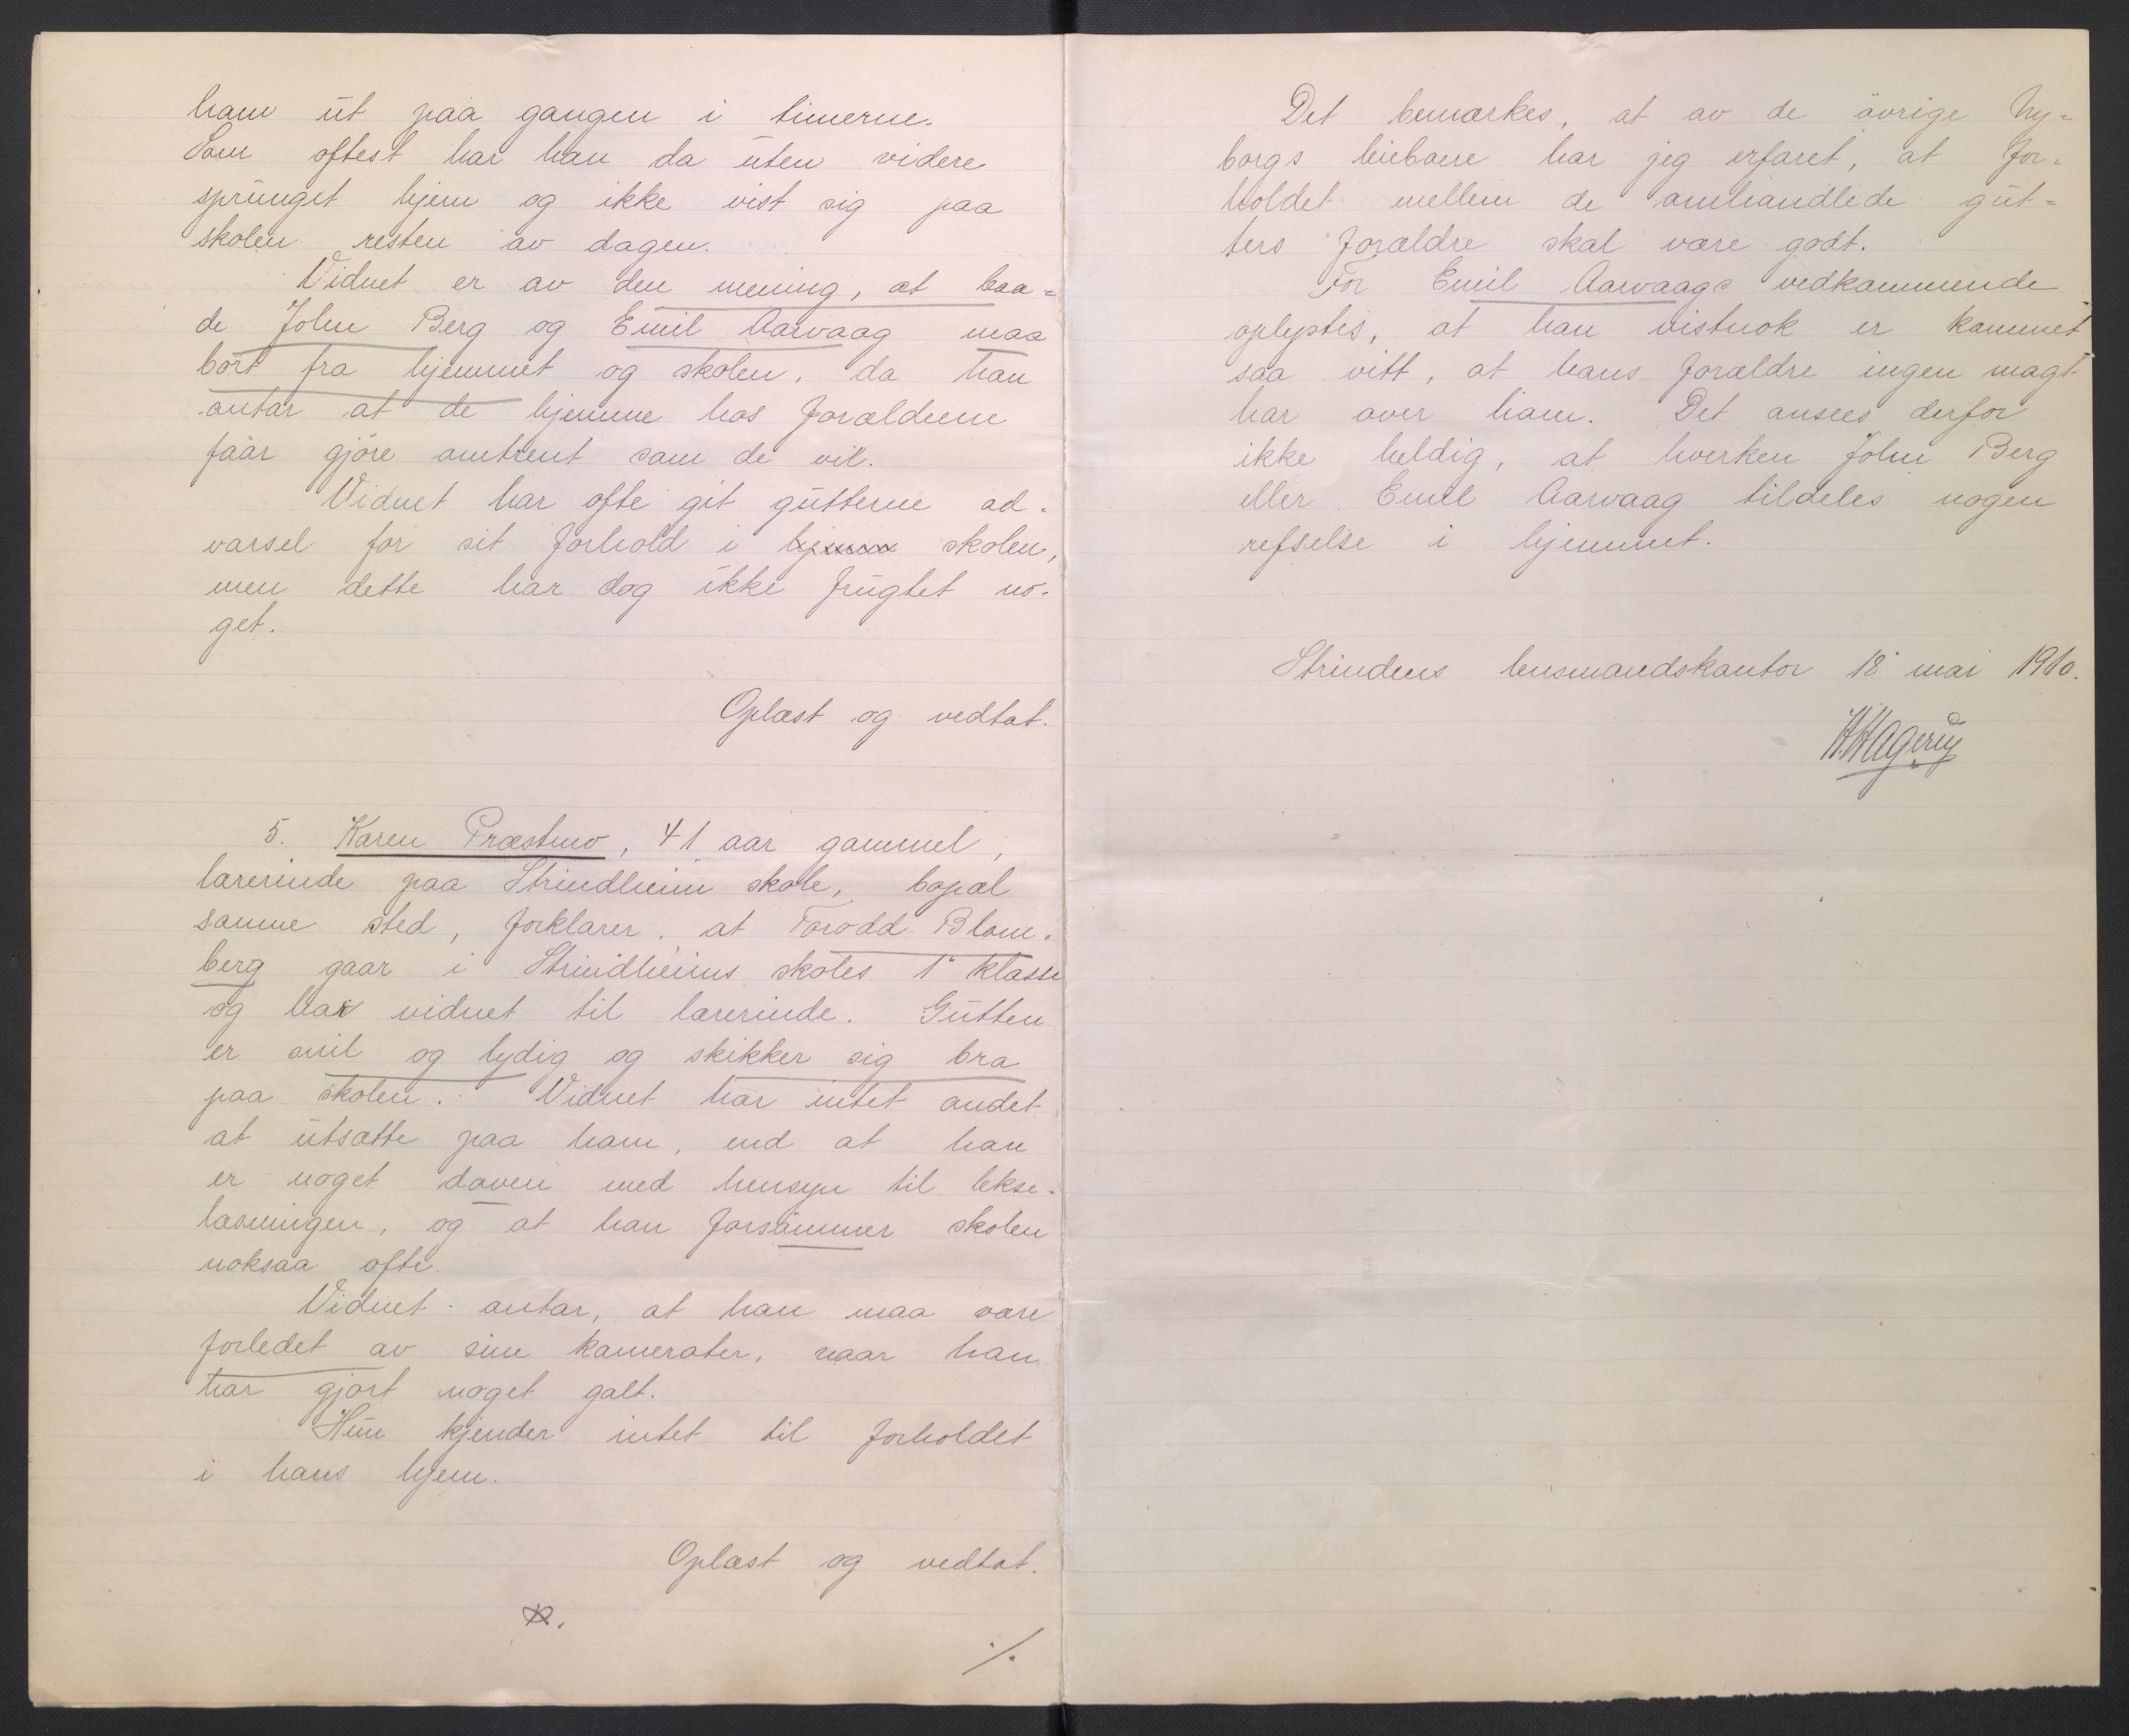 ham ut paa gangen i timerne.
Som oftest har han da uten videre
sprunget hjem og ikke vist sig paa
skolen resten av dagen.
Vidnet er av den mening, at baa=
de John Berg og Emil Aarvaag maa
bort fra hjemmet og skolen, da han
antar at de hjemme hos forældrene
faar gjøre omtrent som de vil.
Vidnet har ofte git gutterne ad-
varsel for sit forhold i hjemm skolen,
men dette har dog ikke frugtet no-
get.
Oplæst og vedtat.
5. Karen Præstmo, 41 aar gammel,
lærerinde paa Strindheim skole, bopæl
samme sted, forklarer, at Torodd Blom-
berg gaar i Strindheims skoles 1' klasse
og har vidnet til lærerinde. Gutten
er snil og lydig og skikker sig bra
paa skolen. Vidnet har intet andet
at utsætte paa ham, end at han
er noget doven med hensyn til lekse-
læsningen, og at han forsømmer skolen
noksaa ofte.
Vidnet antar, at han maa være
forledet av sine kamerater, naar han
har gjort noget galt.
Hun kjender intet til forholdet
i hans hjem.
Oplæst og vedtat.
./.
Det bemærkes, at av de øvrige Ny=
borgs beboere har jeg erfaret, at for=
holdet mellem de omhandlede gut=
ters forældre skal være godt.
For Emil Aarvaags vedkommende
oplyses, at han vistnok er kommet
saa vitt, at hans forældre ingen magt
har over ham. Det ansees derfor
ikke heldig, at hverken John Berg
eller Emil Aarvaag tildeles nogen
refselse i hjemmet.
Strindens lensmandskontor 18' mai 1910.
H Hagerup